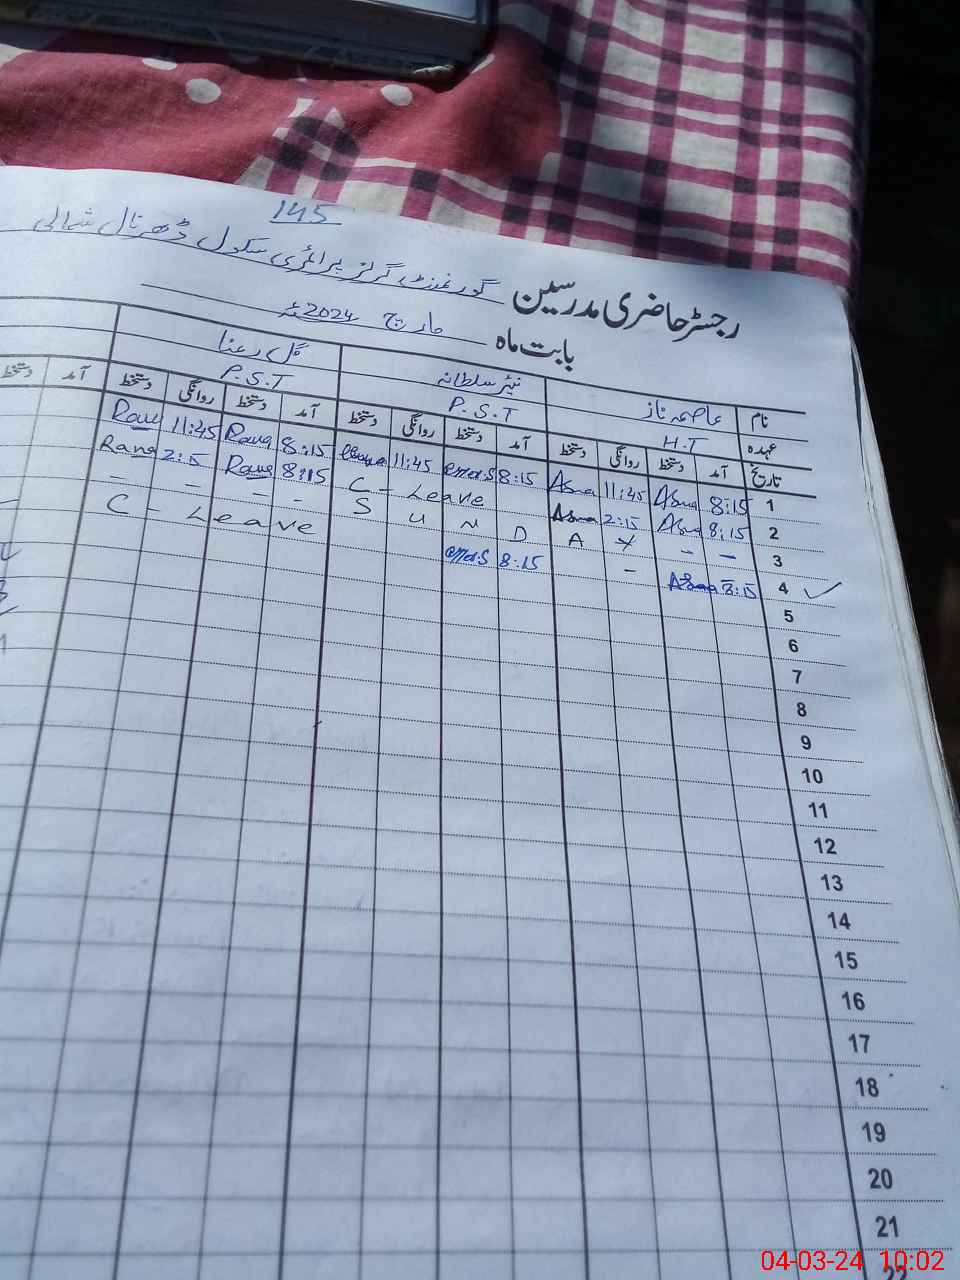 145
رجسٹر حاضری مدرسین گورنمنٹ گرلز پرائمری سکول ڈھرنال شمالی
بابت ماہ مارچ 2024ء
نام عاصمہ ناز نیئر سلطانہ گل رعنا
عہدہ H.T P.S.T P.S.T
تاریخ آمد دستخط روانگی دستخط آمد دستخط روانگی دستخط آمد دستخط روانگی دستخط آمد دستخط
1 8:15 Asma 11:45 Asma 8:15 11:45 8:15 Rana 11:45 Rana
2 8:15 Asma 2:15 Asma C - Leave 8:15 Rana 2:15 Rana
3 - - S U N D A Y - - - -
4 8:15 Asma - 8:15 C - Leave
5
6
7
8
9
10
11
12
13
14
15
16
17
18
19
20
21
22
04-03-24 10:02